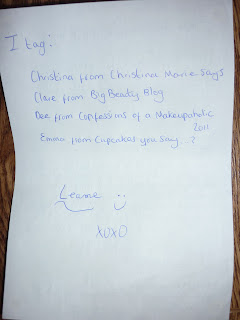 I tag:
Christina from Christina Marie Says
Clare from Big Beauty Blog
Dee from Confessions of a Makeupaholic
2011
Emma from Cupcakes you Say ..?
Leanne :)
XOXO